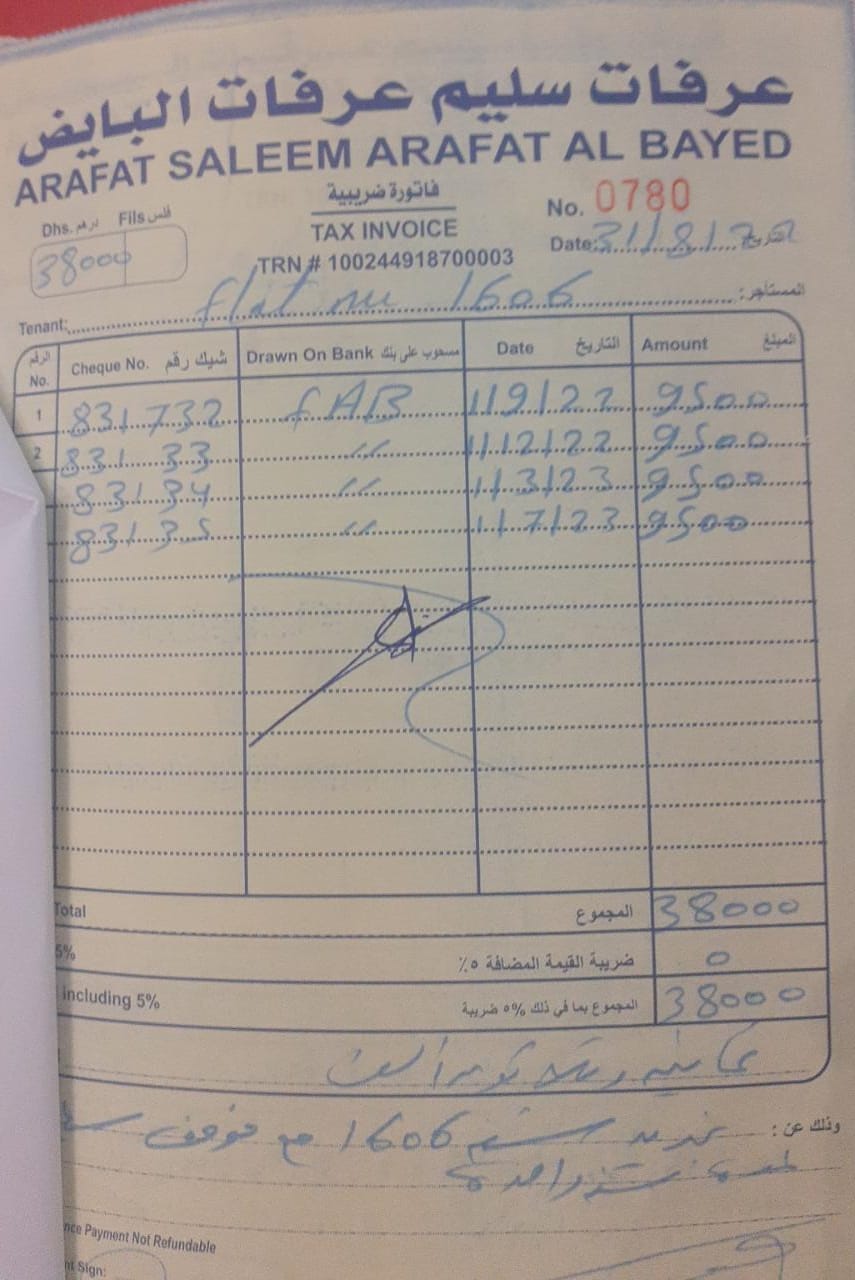 عرفات سليم عرفات البايض
ARAFAT SALEEM ARAFAT AL BAYED
فاتورة ضريبية
TAX INVOICE
TRN # 100244918700003
No. 0780
Date: 31/8/22 التاريخ
Dhs. درهم Fils فلس
38000
Tenant: flat no 1606 المستأجر:
الرقم No. Cheque No. شيك رقم Drawn On Bank مسحوب على بنك Date التاريخ Amount المبلغ
1 831732 FAB 1/9/22 9500
2 831 33 " 1/12/22 9500
831 34 " 1/3/23 9500
831 35 " 1/7/23 9500
Total المجموع 38000
5% ضريبة القيمة المضافة ٥٪ 0
including 5% المجموع بما في ذلك ٥% ضريبة 38000
ثمانية وثلاثون ألف
وذلك عن: تجديد شقة 1606 مع موقف
لمدة سنة واحدة
nce Payment Not Refundable
nt Sign: